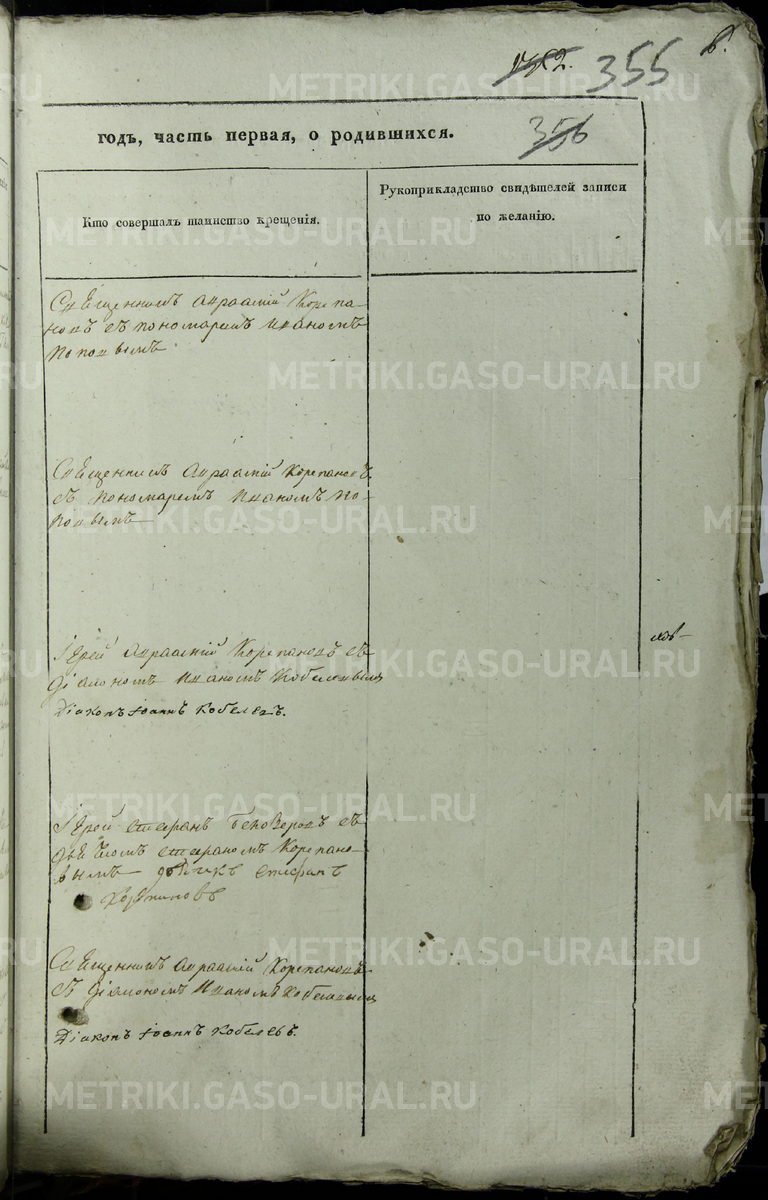 355
356
годъ, часть первая, о родившихся.
Кто совершалъ таинство крещенія.
Рукоприкладство свидѣтелей записи
по желанію.
Священникъ Авраамій Корепа-
новъ съ пономаремъ Иваномъ
Поповымъ
Священникъ Авраамій Корепановъ
съ пономаремъ Иваномъ По-
повымъ
Іерей Авраамій Корепановъ съ
діакономъ Иваномъ Кобелевымъ
Діаконъ Іоаннъ Кобелевъ.
Іерей Стефанъ съ
дьячкомъ Стефаномъ Корепано-
вымъ дьячекъ Стефанъ
Корепановъ
Священникъ Авраамій Корепановъ
съ діакономъ Иваномъ Кобелевымъ
Діаконъ Іоаннъ Кобелевъ.
METRIKI.GASO-URAL.RU